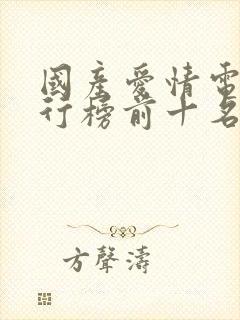 國產愛情電
行榜前十名
方聲濤